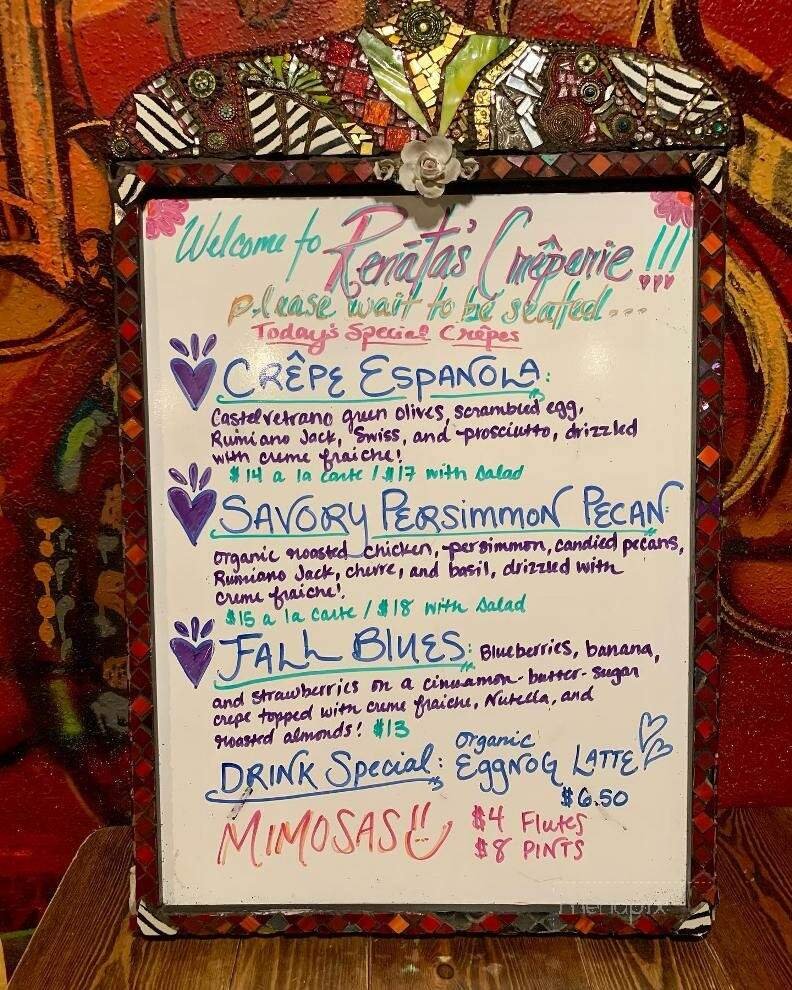 Welcome to Renata's Crêperie!!!
please wait to be seated...
Today's Special Crêpes
CRÊPE ESPANOLA:
Castelvetrano green olives, scrambled egg,
Rumiano Jack, Swiss, and prosciutto, drizzled
with creme fraiche!
$14 a la carte / $17 with salad
SAVORY PERSIMMON PECAN:
organic roasted chicken, persimmon, candied pecans,
Rumiano Jack, chevre, and basil, drizzled with
creme fraiche!
$15 a la carte / $18 with salad
FALL BLUES: Blueberries, banana,
and strawberries on a cinnamon-butter-sugar
crepe topped with creme fraiche, Nutella, and
roasted almonds! $13
DRINK Special: organic EggNOG LATTE
$6.50
MIMOSAS!! $4 Flutes
$8 PINTS
menupix